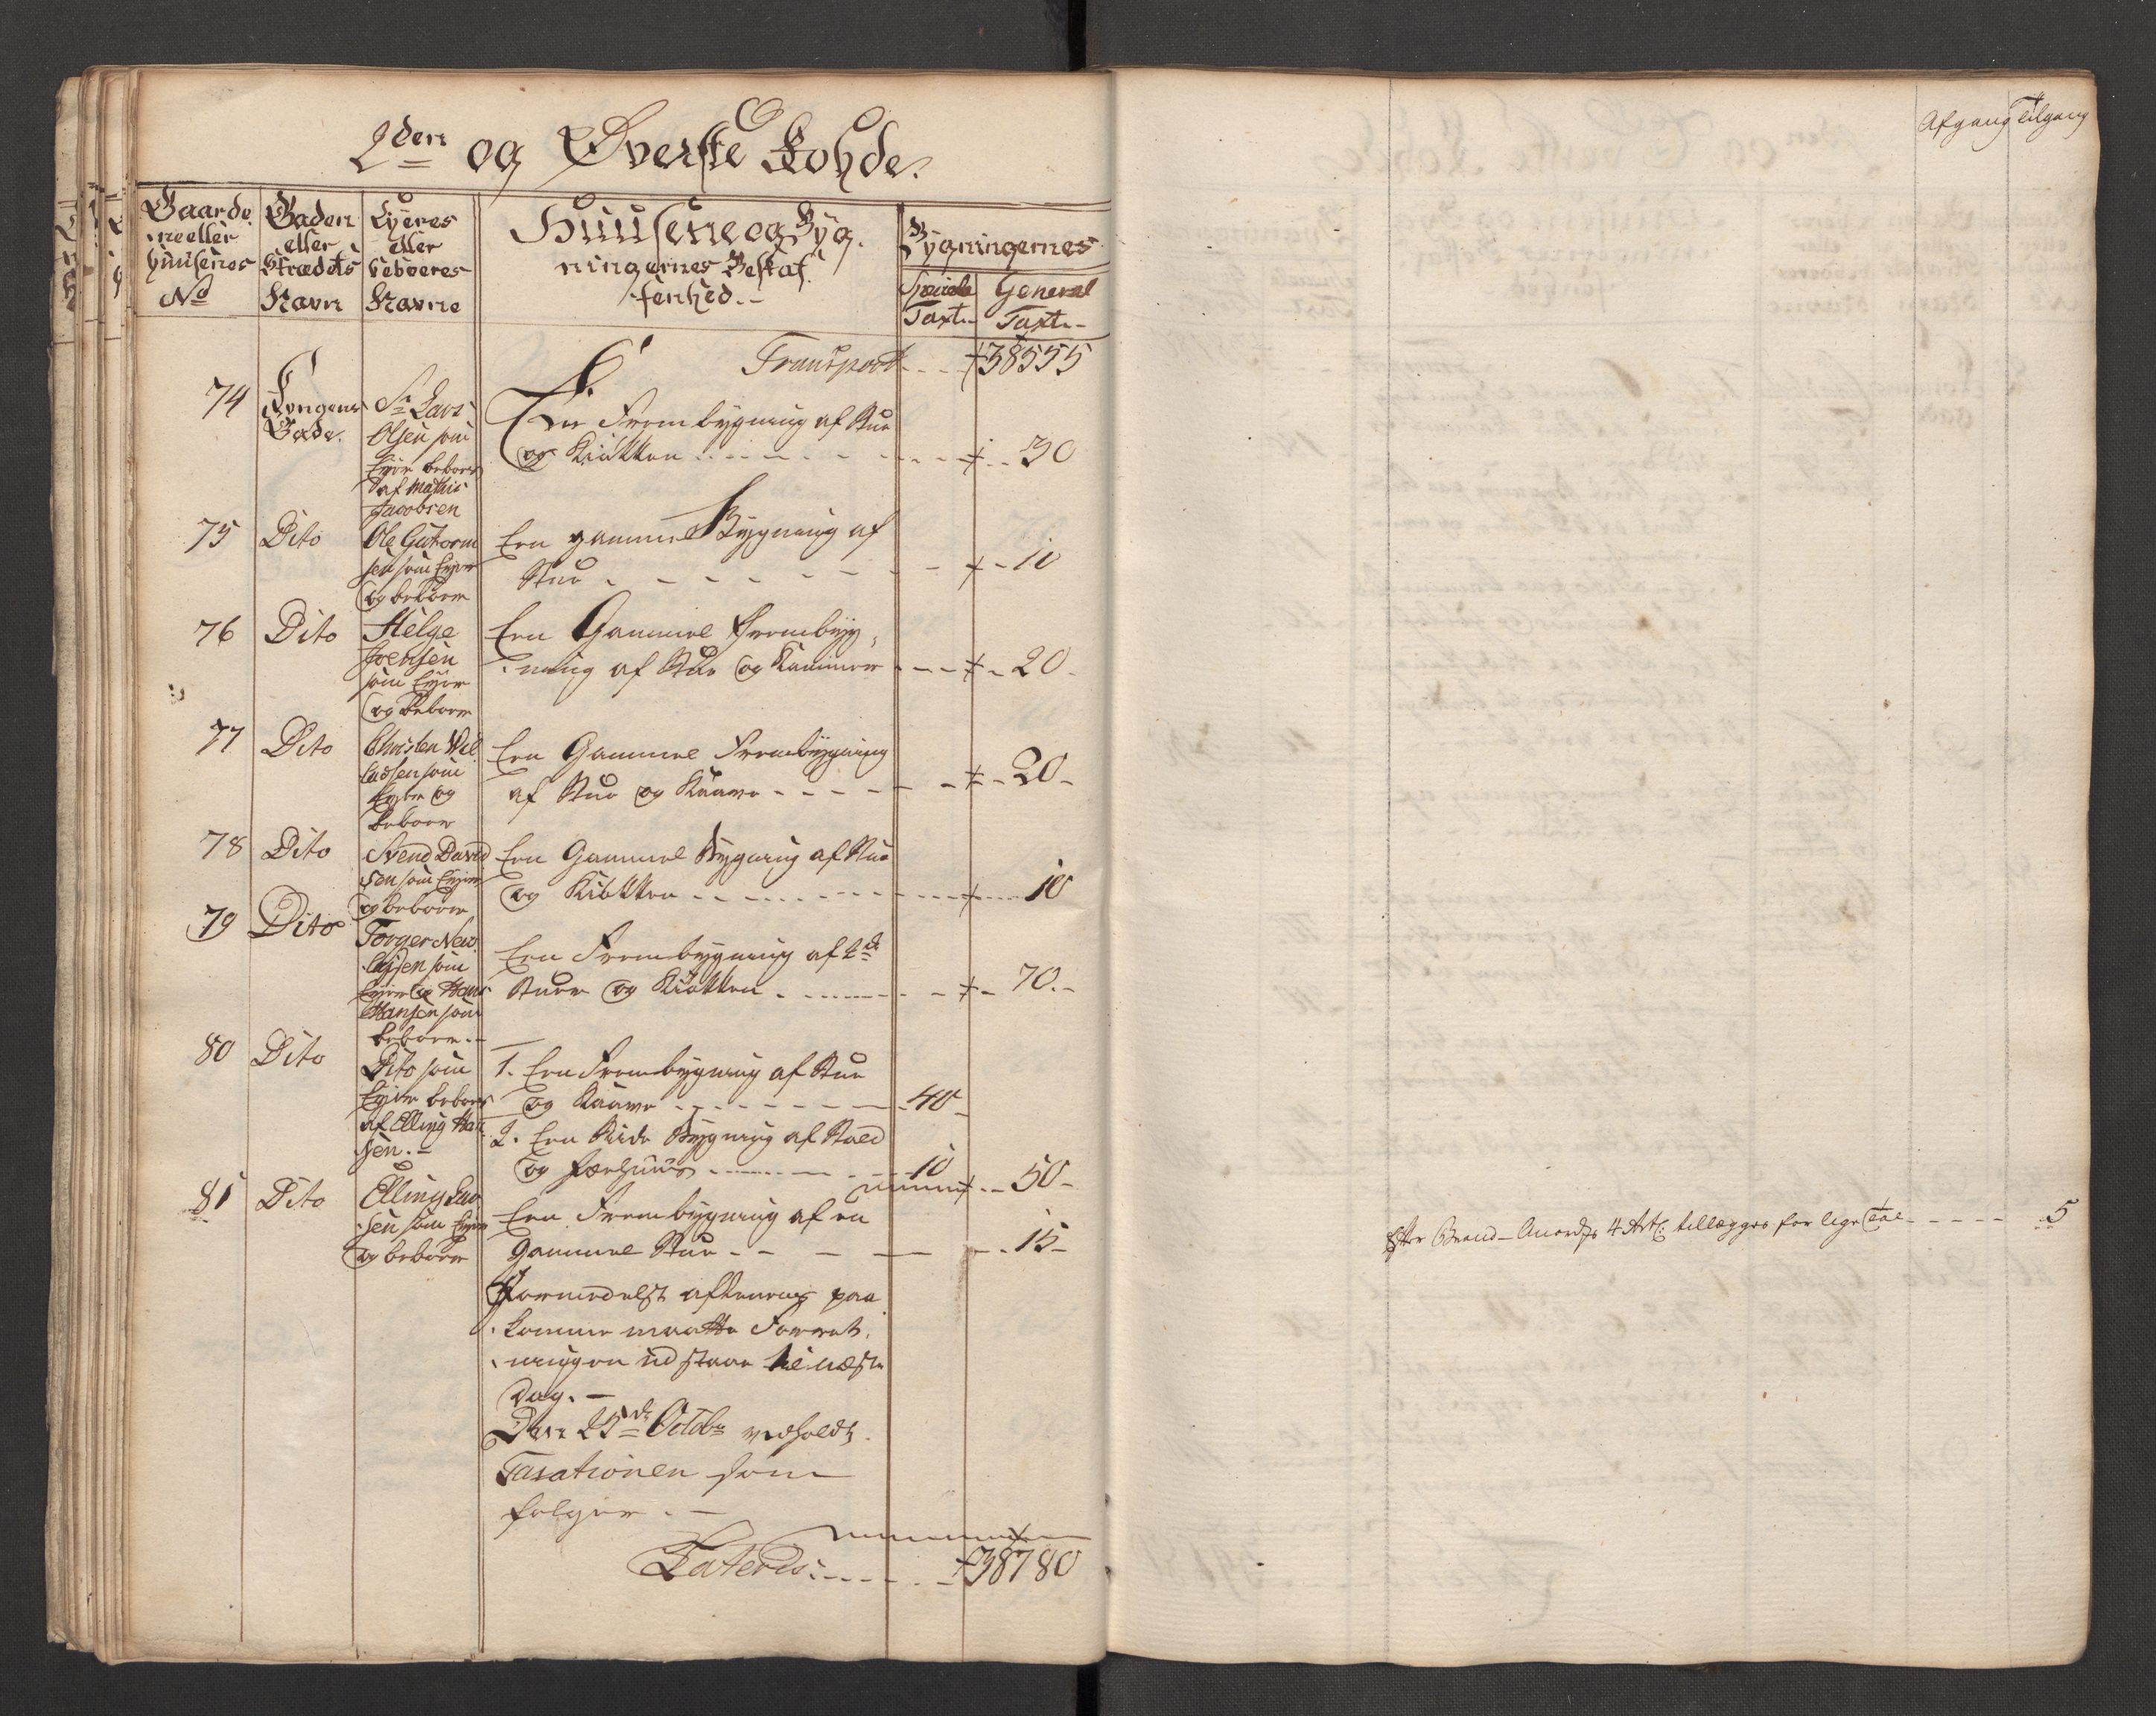 2den og Øverste Rohde.
Gaarde
ne eller
huusenes
No
Gaden
eller
Strædets
Navn
Eyeres
eller
beboeres
Navne
Huusene og Byg-
ningernes Beskaf-
fenhed.-
Bygningernes
Speciale
Taxt.-
General
Taxt.-
Transport - - - 38555
74
Gade.
Sr Lars
Olsen som
Eyer beboes
af Mathis
Jacobsen
En Frembygning af Stue
og Kiøkken - - - - - 30
75
Dito
Ole Gutorm
sen som Eyer
og beboer
En gammel Bygning af
Stue - - - - - - 10
76
Dito
Helge
som Eyer
og beboer
En Gammel Frembyg-
ning af Stue og Kammer - - - 20-
77
Dito
Christen Niel
som
Eyer og
beboer
En Gammel Frembygning
af Stue og Kaave - - - - - 20-
78
Dito
Svend David
sen som Eyer
og beboer
En Gammel Bygning af Stue
og Kiøkken - - - - - - 10
79
Dito
Torger
som
Eyer og Hans
Hansen som
beboer.-
En Frembygning af 2de
Stuer og Kiøkken - - - - 70.-
80
Dito
Dito som
Eyer beboes
af Elling Han
sen.-
1. En Frembygning af Stue
og Kaave - - - - - - 40-
2. En Side Bygning af Stald
og færhuus - - - - 10
50-
81
Dito
Elling Lar
sen som Eyer
og beboer
En Frembygning af en
gammel Stue - - - - - - 15-
Formedelst aftenens paa
komme maatte Forret-
ningen udstaae til næste
Dag.-
Den 25de Octobr vedholdt
Taxationen som
følger.-
Lateris: - - - - - 38780
Afgang Tilgang
Efter Brand-Anordgs 4 Art: tillægges for lige Tal - - - - - 5